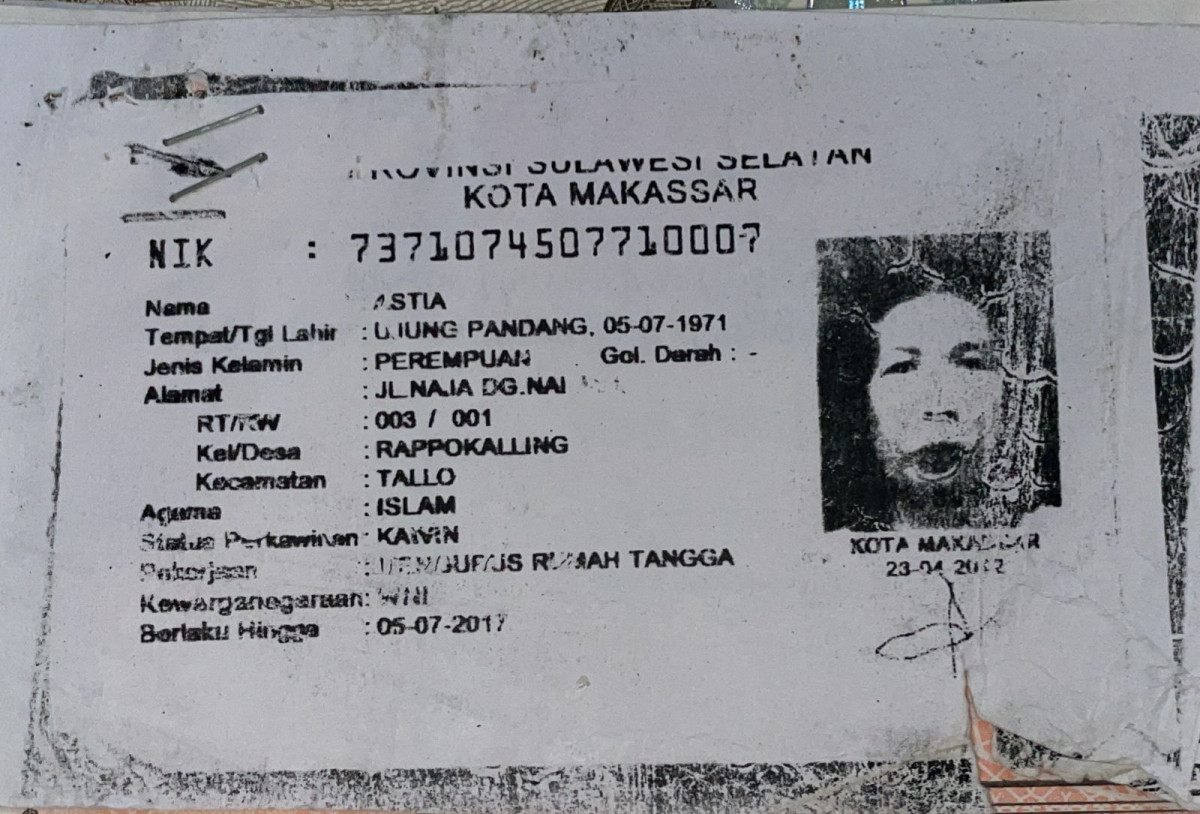 PROVINSI SULAWESI SELATAN
KOTA MAKASSAR
NIK : 7371074507710007
Nama : ASTIA
Tempat/Tgl Lahir : UJUNG PANDANG, 05-07-1971
Jenis Kelamin : PEREMPUAN Gol. Darah : -
Alamat : JL.NAJA DG.NAI
RT/RW : 003 / 001
Kel/Desa : RAPPOKALLING
Kecamatan : TALLO
Agama : ISLAM
Status Perkawinan : KAWIN
Pekerjaan : MENGURUS RUMAH TANGGA
Kewarganegaraan: WNI
Berlaku Hingga : 05-07-2017
KOTA MAKASSAR
23-04-2012